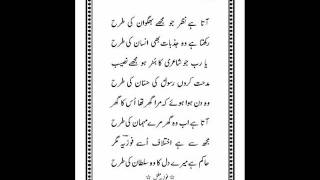 آتا ہے نظر جو مجھے بھگوان کی طرح
رکھتا ہے وہ جذبات بھی انسان کی طرح
یا رب جو شاعری کا ہنر ہو مجھے نصیب
مدحت کروں رسول کی حسّان کی طرح
وہ دن ہوا ہوئے کہ مرا گھر تھا اُس کا گھر
آتا ہے اب وہ گھر مرے مہمان کی طرح
مجھ سے ہے اختلاف اُسے فوزیہ مگر
حاکم ہے میرے دل کا وہ سلطان کی طرح